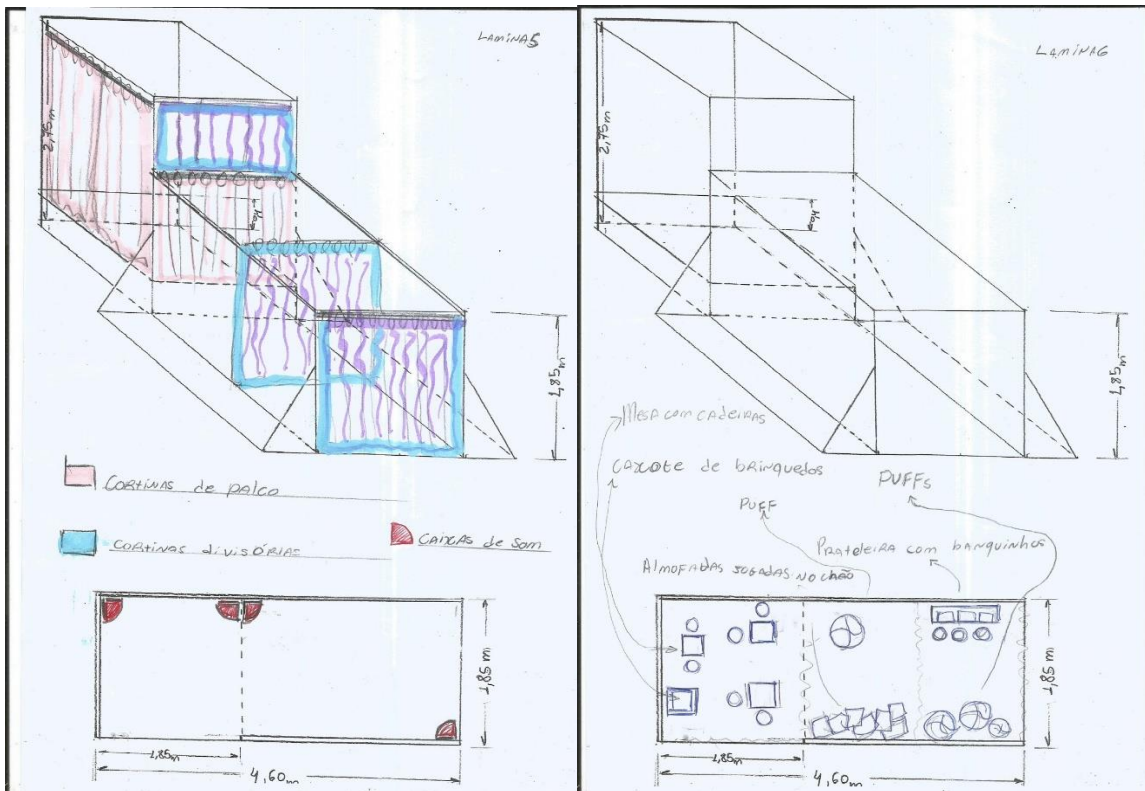 LAMINA5
2,75m
1,85m
CORTINAS de PALCO
CORTINAS divisÓRIAS
CAIXAS de Som
1,85m
1,85m
4,60m
LAMINA6
2,75m
1,85m
MESA COM CADEIRAS
CAIXOTE de BRINQUEDOS
PUFFs
PUFF
PRATELEIRA COM BANQUINHOS
ALMOFADAS JOGADAS NO CHÃO
1,85m
1,85m
4,60m